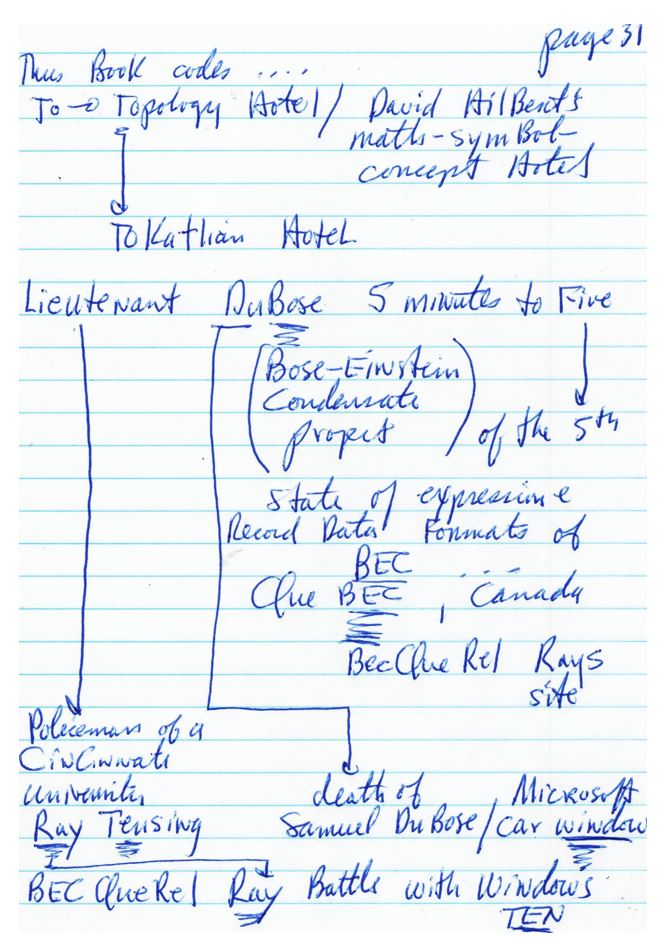 page 31
Thus Book codes ....
To → Topology Hotel / David HilBert's
maths-symBol-
concept Hotel
ToKatlian Hotel
Lieutenant DuBose 5 minutes to Five
(Bose-Einstein
Condensate
project) of the 5th
State of expressive
Record Data Formats of
BEC ...
Que BEC, Canada
BecQueRel Rays
site
Policeman of a
CiNCiNNati
University
Ray Tensing
death of
Samuel DuBose /
Microsoft
car window
BEC QueRel Ray Battle with Windows
TEN